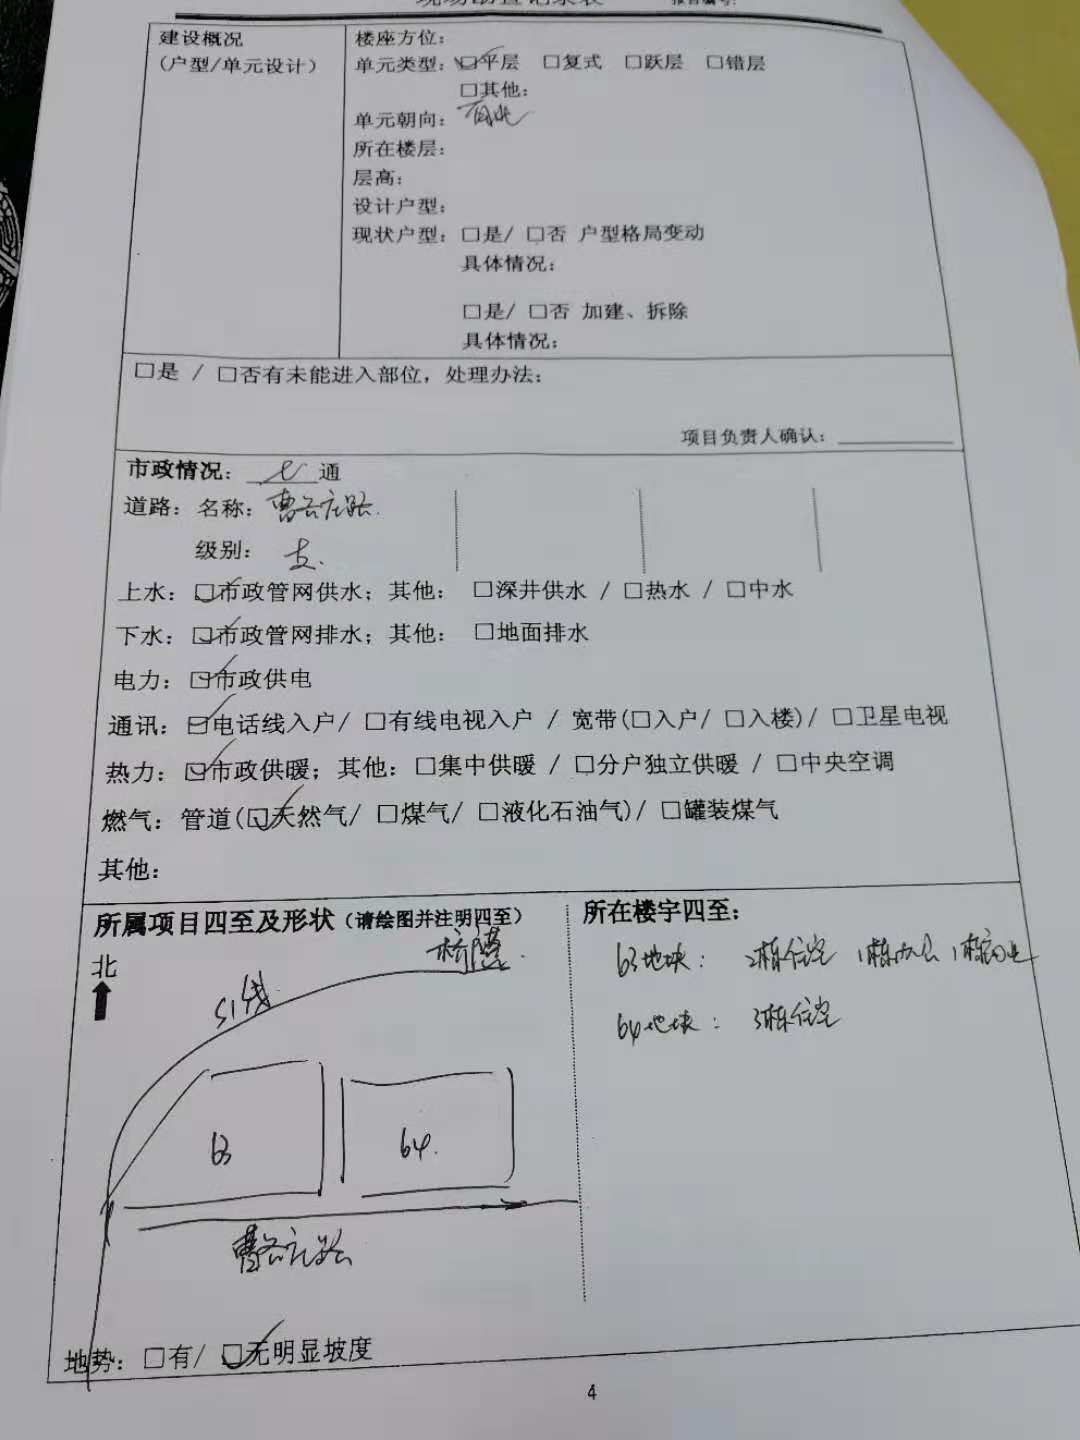 现场勘查记录表
报告编号:
建设概况
(户型/单元设计)
楼座方位:
单元类型: ☑平层 □复式 □跃层 □错层
□其他:
单元朝向: 南北
所在楼层:
层高:
设计户型:
现状户型: □是/ □否 户型格局变动
具体情况:
□是/ □否 加建、拆除
具体情况:
□是 / □否有未能进入部位, 处理办法:
项目负责人确认:
市政情况: 七 通
道路: 名称: 曹各庄路.
级别: 支.
上水: ☑市政管网供水; 其他: □深井供水 / □热水 / □中水
下水: ☑市政管网排水; 其他: □地面排水
电力: ☑市政供电
通讯: ☑电话线入户/ □有线电视入户 / 宽带(□入户/ □入楼)/ □卫星电视
热力: ☑市政供暖; 其他: □集中供暖 / □分户独立供暖 / □中央空调
燃气: 管道(☑天然气/ □煤气/ □液化石油气)/ □罐装煤气
其他:
所属项目四至及形状(请绘图并注明四至)
北
S1线
63
64.
曹各庄路
所在楼宇四至:
63地块: 2栋住宅 1栋办公 1栋商业
64地块: 3栋住宅
地势: □有/ ☑无明显坡度
4